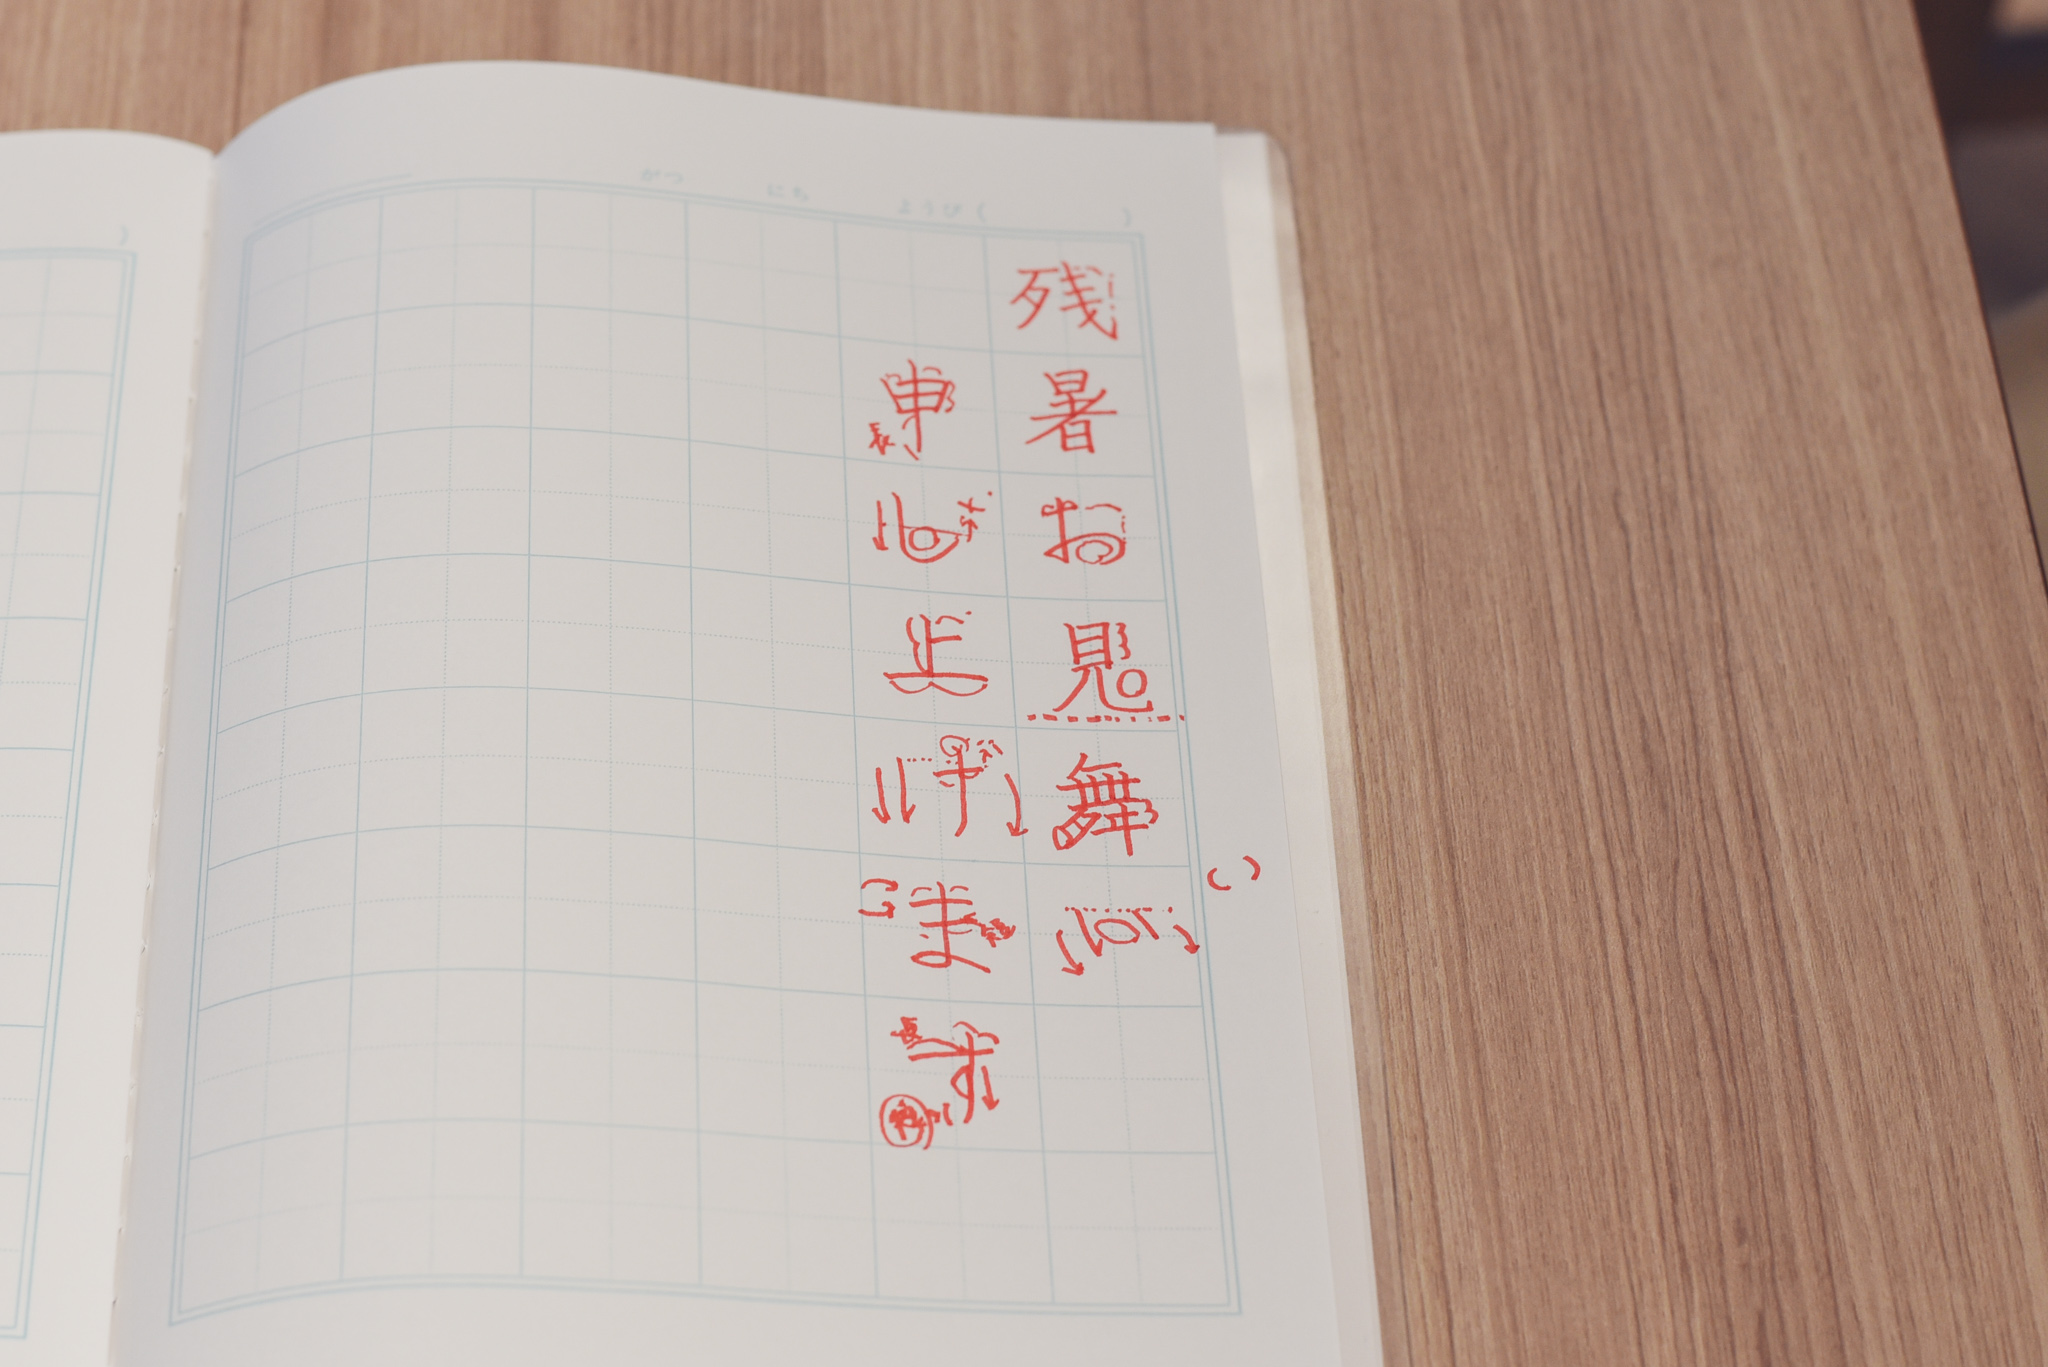 がつ にち ようび( )
残暑お見舞い
申し上げます
長
)